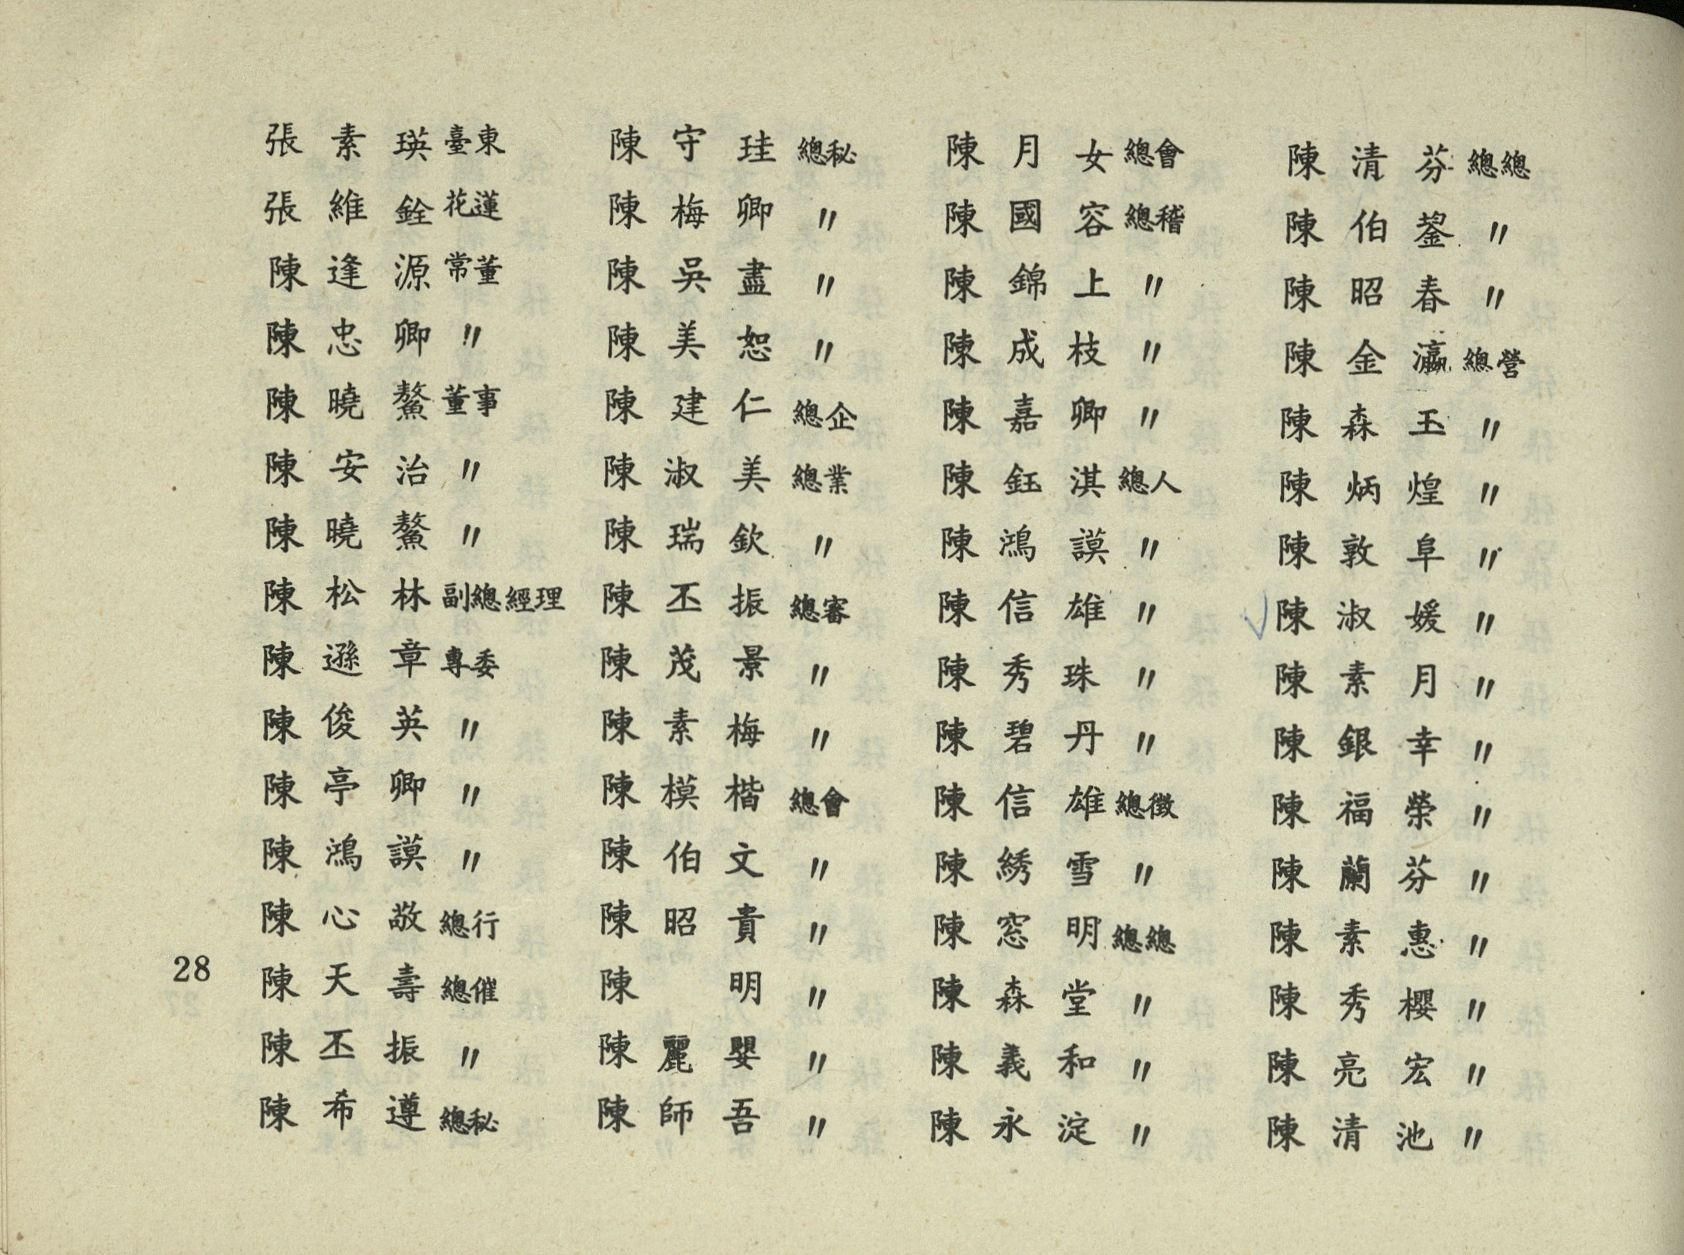 張素瑛臺東
張維銓花蓮
陳逢源常董
陳忠卿〃
陳曉鰲董事
陳安治〃
陳曉鰲〃
陳松林副總經理
陳遜章專委
陳俊英〃
陳亭卿〃
陳鴻謨〃
陳心敬總行
陳天壽總催
陳丕振〃
陳希遵總秘
陳守珪總秘
陳梅卿〃
陳吳盡〃
陳美恕〃
陳建仁總企
陳淑美總業
陳瑞欽〃
陳丕振總審
陳茂景〃
陳素梅〃
陳模楷總會
陳伯文〃
陳昭貴〃
陳 明〃
陳麗嬰〃
陳師吾〃
陳月女總會
陳國容總稽
陳錦上〃
陳成枝〃
陳嘉卿〃
陳鈺淇總人
陳鴻謨〃
陳信雄〃
陳秀珠〃
陳碧丹〃
陳信雄總徵
陳綉雪〃
陳窓明總總
陳森堂〃
陳義和〃
陳永淀〃
陳清芬總總
陳伯鋆〃
陳昭春〃
陳金瀛總營
陳森玉〃
陳炳煌〃
陳敦阜〃
陳淑媛〃
陳素月〃
陳銀幸〃
陳福榮〃
陳蘭芬〃
陳素惠〃
陳秀櫻〃
陳亮宏〃
陳清池〃
28